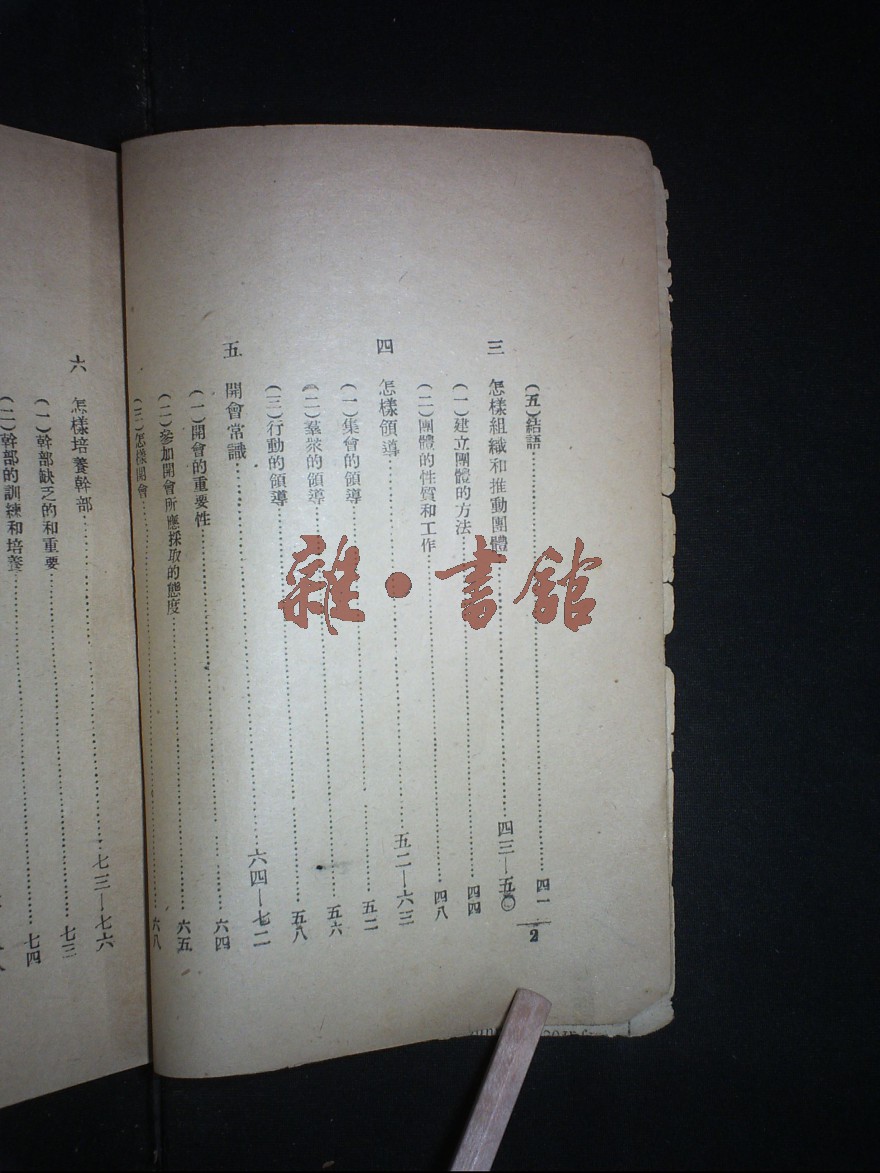 （五）結語……四一
三　怎樣組織和推動團體……四三—五〇
（一）建立團體的方法……四四
（二）團體的性質和工作……四八
四　怎樣領導……五二—六三
（一）集會的領導……五二
（二）羣衆的領導……五六
（三）行動的領導……五八
五　開會常識……六四—七二
（一）開會的重要性……六四
（二）參加開會所應採取的態度……六五
（三）怎樣開會……六八
2
六　怎樣培養幹部……七三—七六
（一）幹部缺乏的和重要……七三
（二）幹部的訓練和培養……七四
雜・書館